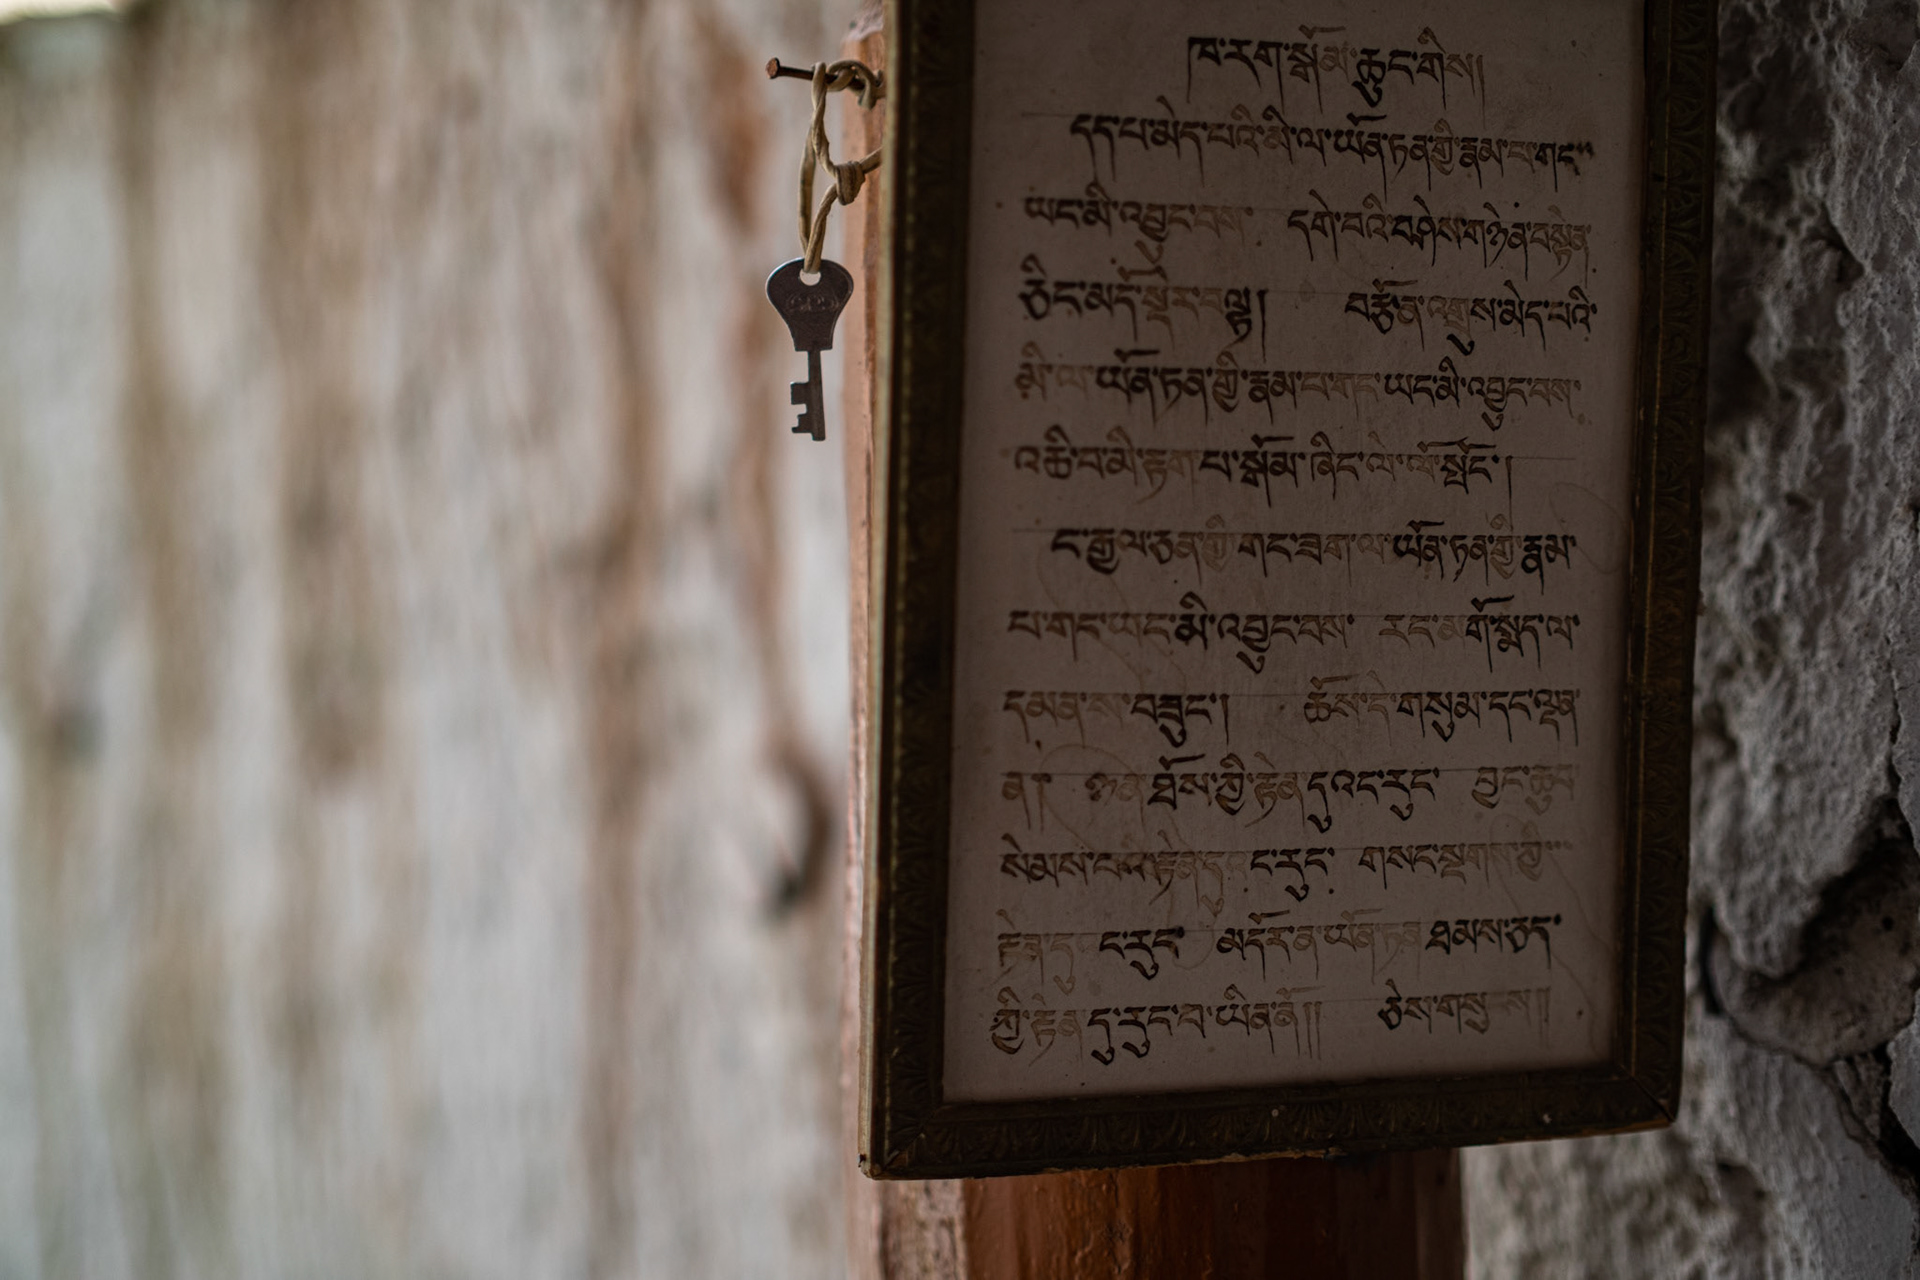 ཁ་རག་སྒོམ་ཆུང་གིས།
དད་པ་མེད་པའི་མི་ལ་ཡོན་ཏན་གྱི་རྣམ་པ་གང་
ཡང་མི་འབྱུང་བས་ དགེ་བའི་བཤེས་གཉེན་བསྟེན་
ཅིང་མདོ་སྡེར་བལྟ། བརྩོན་འགྲུས་མེད་པའི་
མི་ལ་ཡོན་ཏན་གྱི་རྣམ་པ་གང་ཡང་མི་འབྱུང་བས་
འཆི་བ་མི་རྟག་པ་སྒོམ་ཞིང་ལེ་ལོ་སྤོང་།
ང་རྒྱལ་ཅན་གྱི་གང་ཟག་ལ་ཡོན་ཏན་གྱི་རྣམ་
པ་གང་ཡང་མི་འབྱུང་བས་ རང་མགོ་སྨད་ལ་
དམན་ས་བཟུང་། ཆོས་དེ་གསུམ་དང་ལྡན་
ན། ཉན་ཐོས་ཀྱི་རྟེན་དུའང་རུང་ བྱང་ཆུབ་
སེམས་དཔའི་རྟེན་དུའང་རུང་ གསང་སྔགས་ཀྱི་
རྟེན་དུའང་རུང་ མདོར་ན་ཡོན་ཏན་ཐམས་ཅད་
ཀྱི་རྟེན་དུ་རུང་བ་ཡིན་ནོ།། ཅེས་གསུངས།།